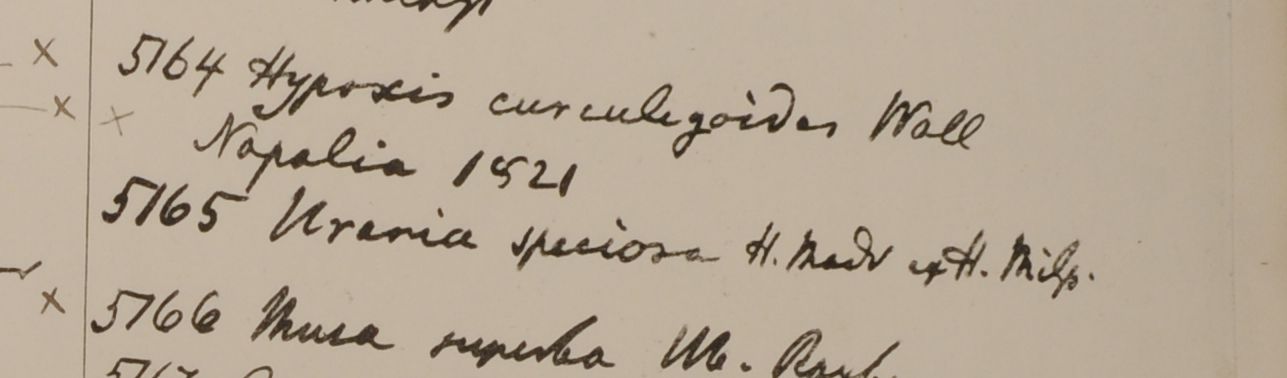 5164 Hypoxis curculigoides Wall
Napalia 1821
5165 Urania speciosa H. Madr ex H. Milp.
5166 Musa superba Hb. Roxb